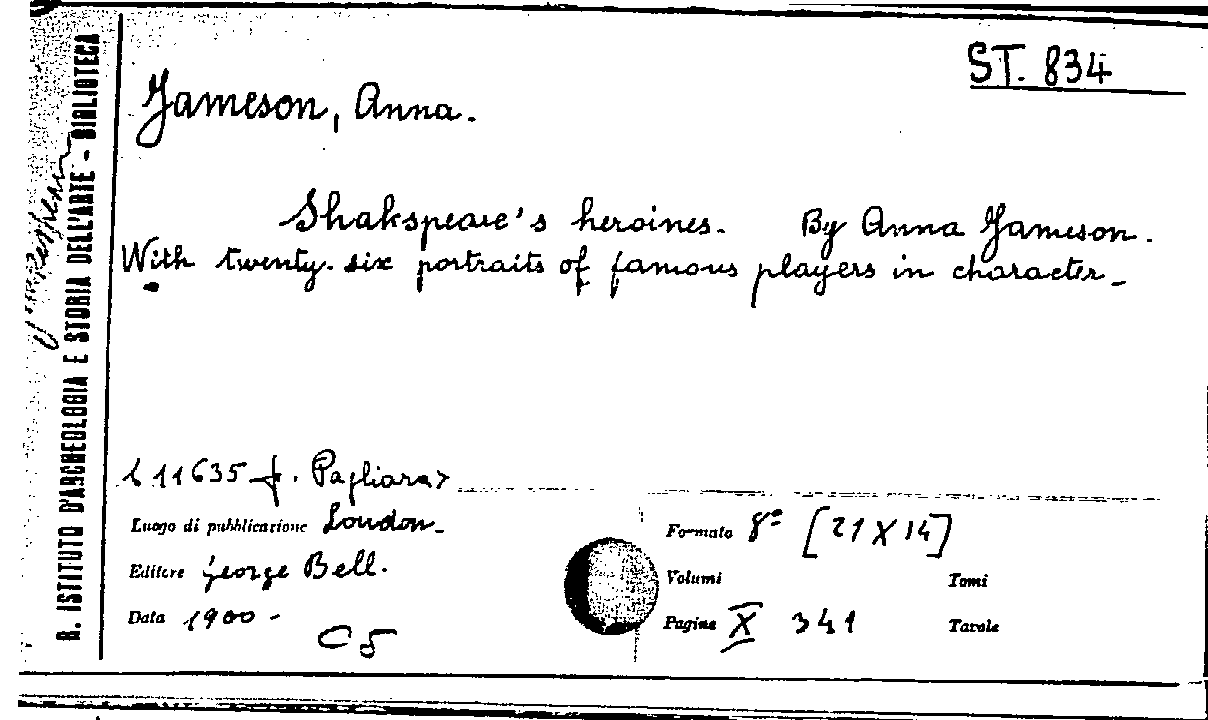 ST. 834
Jameson, Anna.
Shakspeare's heroines. By Anna Jameson.
With twenty-six portraits of famous players in character_
R. ISTITUTO D'ARCHEOLOGIA E STORIA DELL'ARTE - BIBLIOTECA
11635 f. Pagliara>
Luogo di pubblicazione London_
Editore George Bell.
Data 1900 -
C5
Formato 8º [21 X 14]
Volumi Tomi
Pagine X 341 Tavole